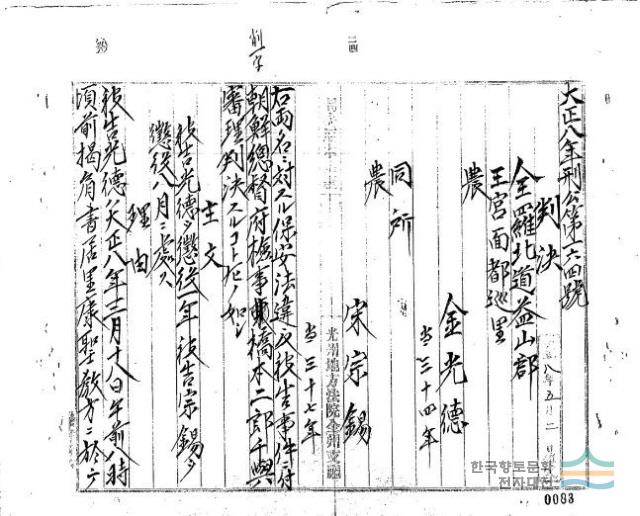 大正八年刑公第一六四號
判決
全羅北道益山郡
王宮面都巡里
農
金光德
當三十四年
同所
農
宋宗錫
當三十七年
光州地方法院全州支廳
右兩名ニ對スル保安法違反被告事件ニ付
朝鮮總督府檢事橋本二郎干與
審理判決スルコト左ノ如シ
主文
被告光德ヲ懲役一年被告宗錫ヲ
懲役八月ニ處ス
理由
被告光德ハ大正八年三月十八日午前八時
頃前揭肩書居里康聖敎方ニ於テ
削一字
한국향토문화
전자대전
0083